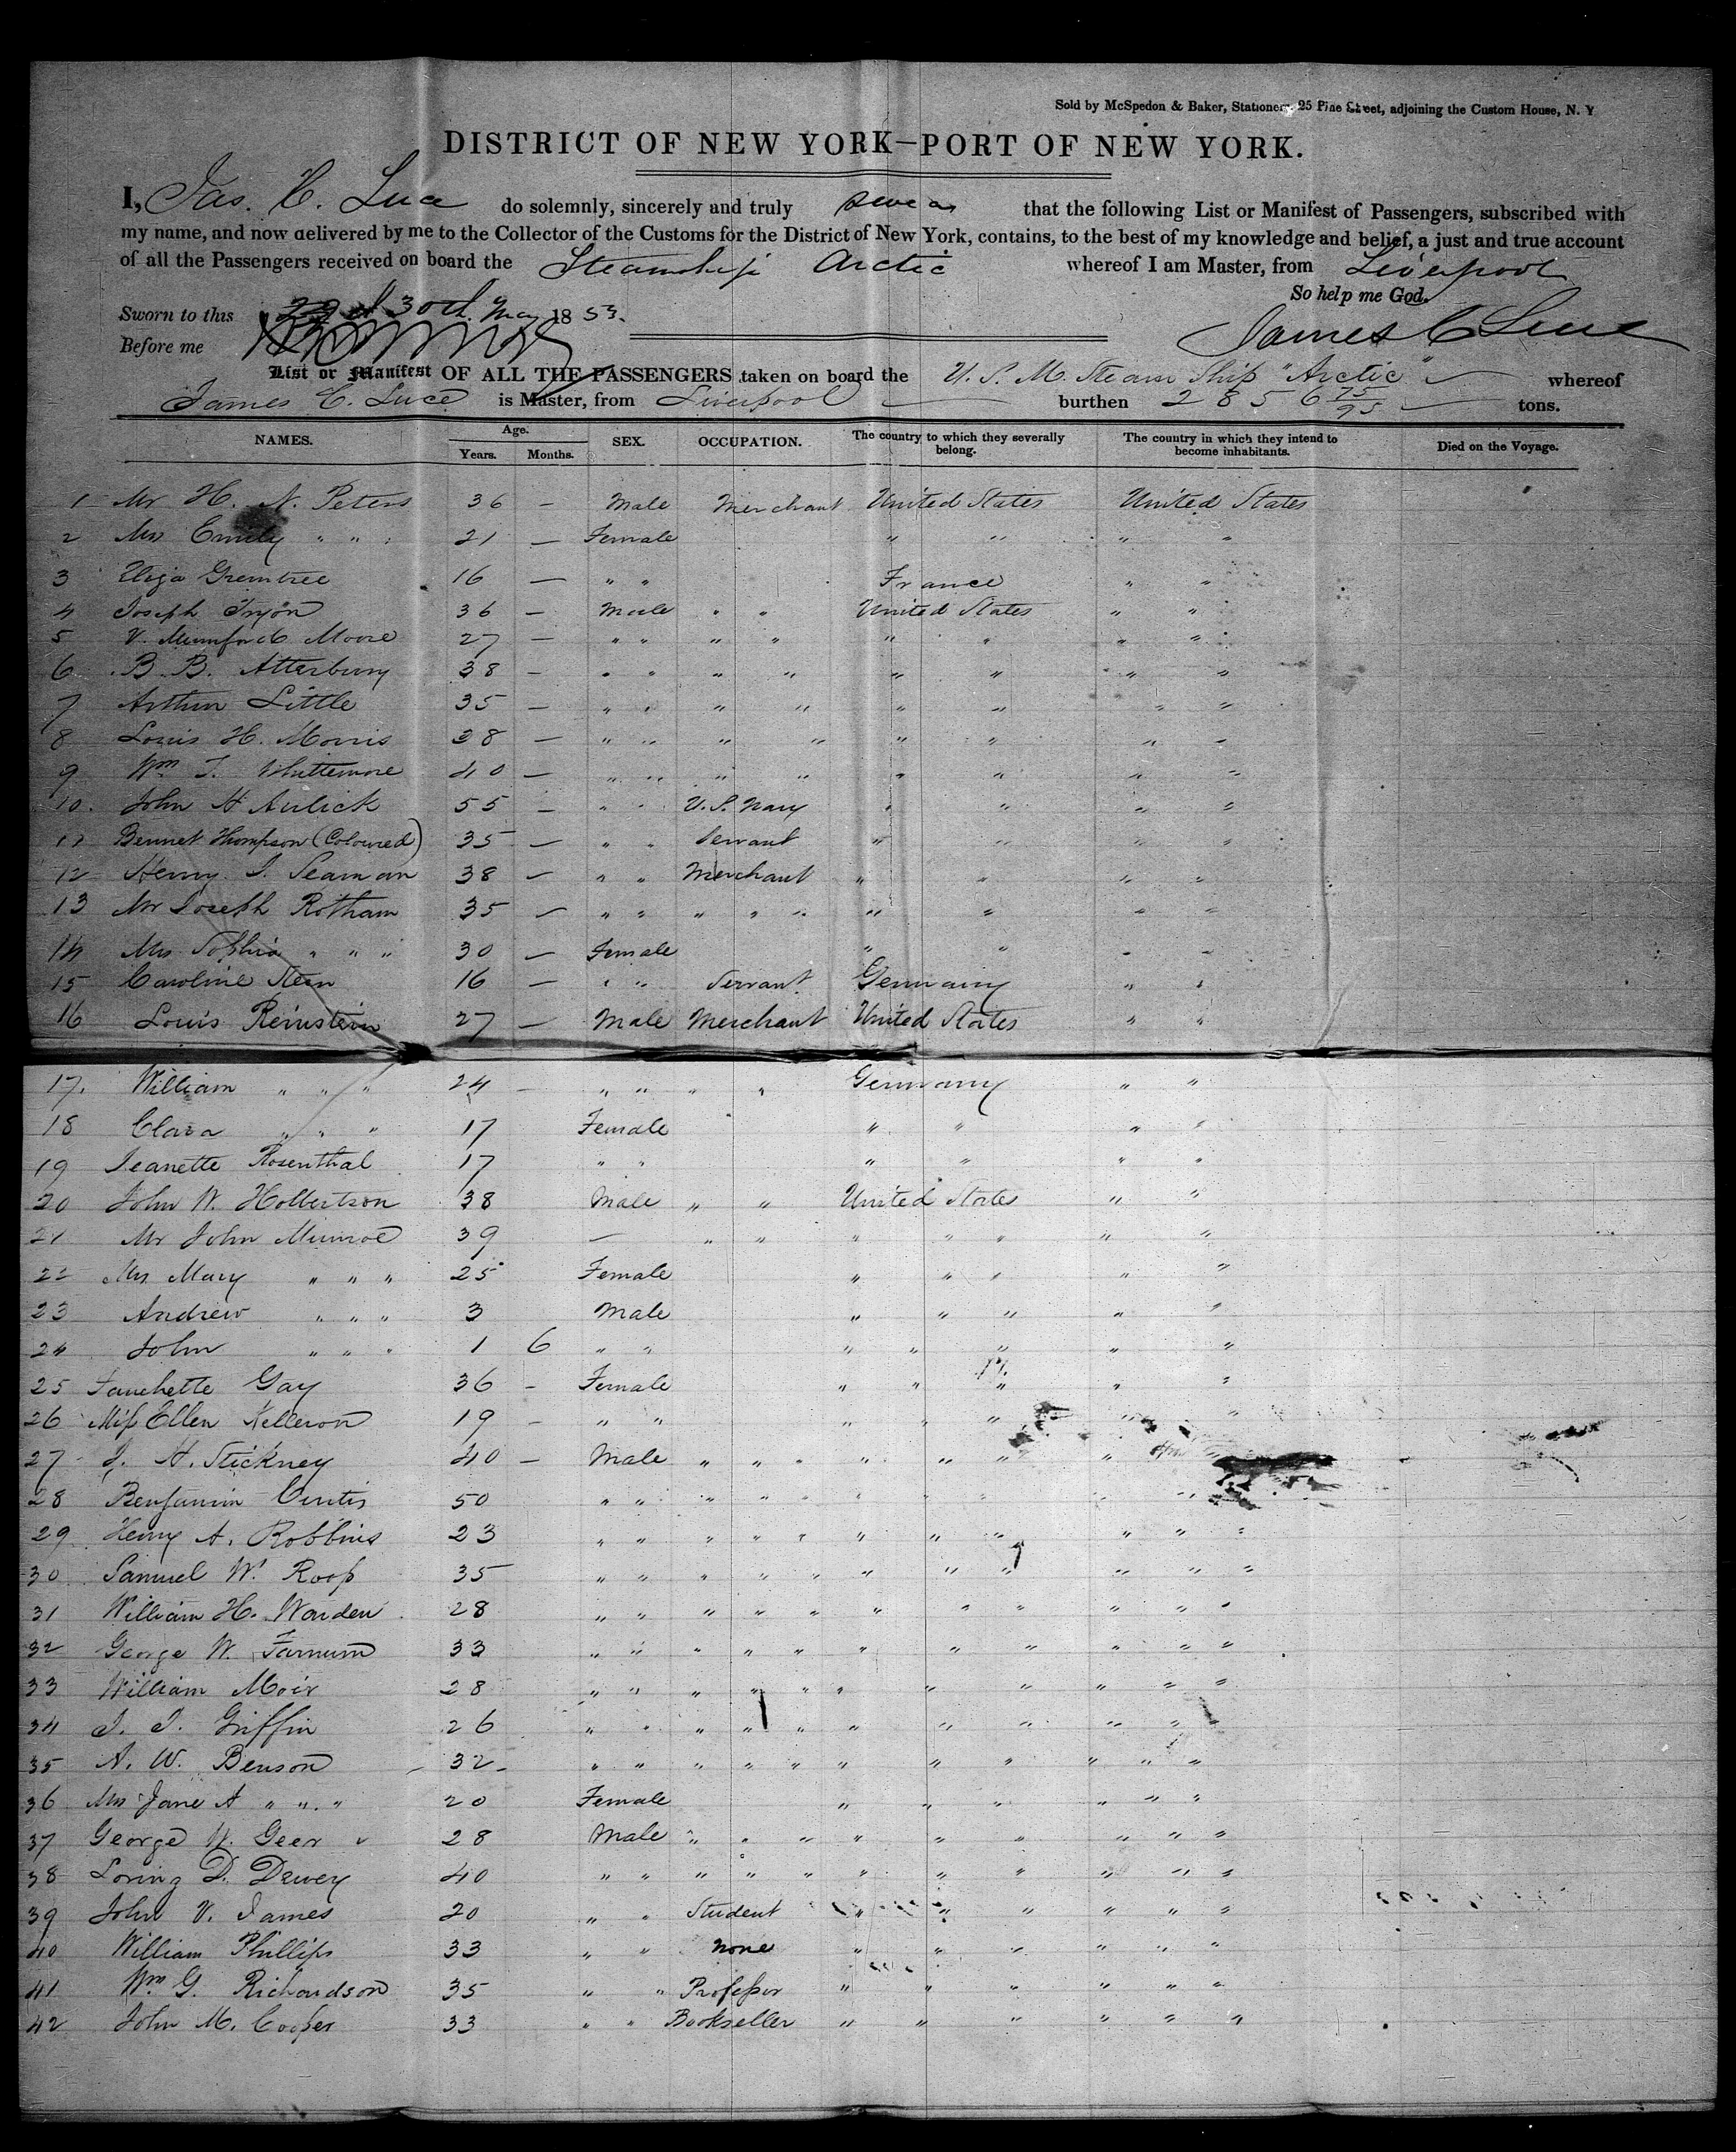 Sold by McSpedon & Baker, Stationers, 25 Pine Street, adjoining the Custom House, N. Y
DISTRICT OF NEW YORK—PORT OF NEW YORK.
I, Jas. C. Luce do solemnly, sincerely and truly swear that the following List or Manifest of Passengers, subscribed with
my name, and now delivered by me to the Collector of the Customs for the District of New York, contains, to the best of my knowledge and belief, a just and true account
of all the Passengers received on board the Steamship Arctic whereof I am Master, from Liverpool
So help me God.
Sworn to this 30th May 1853.
James C Luce
Before me
List or Manifest OF ALL THE PASSENGERS taken on board the U. S. M. Steam Ship "Arctic" whereof
James C. Luce is Master, from Liverpool burthen 2856 75/95 tons.
NAMES. Age. Years. Months. SEX. OCCUPATION. The country to which they severally belong. The country in which they intend to become inhabitants. Died on the Voyage.
1 Mr H. N. Peters 36 — Male Merchant United States United States
2 Mrs Emily " " " 21 — Female " " " "
3 Eliza Greentree 16 — " " France " "
4 Joseph Tryon 36 — Male " " United States " "
5 V. Mumford Moore 27 — " " " " " " " "
6 B. B. Atterbury 38 — " " " " " " " "
7 Arthur Little 35 — " " " " " " " "
8 Louis H. Morris 28 — " " " " " " " "
9 Wm T. Whittemore 40 — " " " " " " " "
10. John H Aulick 55 — " " U. S. Navy " " " "
11 Bennet Thompson (Coloured) 35 — " " Servant " " " "
12 Henry I. Seaman 38 — " " Merchant " " " "
13 Mr Joseph Rotham 35 — " " " " " " " " "
14 Mrs Sophia " " " 30 — Female " " " "
15 Caroline Stern 16 — " " Servant Germany " "
16 Louis Reinstein 27 — Male Merchant United States " "
17. William " " " 24 — " " " " Germany " "
18 Clara " " " 17 Female " " " "
19 Jeanette Rosenthal 17 " " " " " "
20 John W. Holbertson 38 Male " " United States " "
21 Mr John Munroe 39 — " " " " " " "
22 Mrs Mary " " " 25 Female " " " " "
23 Andrew " " " 3 Male " " " " "
24 John " " " 1 6 " " " " " " "
25 Fanchette Gay 36 — Female " " " " "
26 Miss Ellen Kelleron 19 — " " " " " " "
27 J. H. Stickney 40 — Male " " " " " " "
28 Benjamin Curtis 50 " " " " " " " " "
29 Henry A. Robbins 23 " " " " " " " " " " "
30 Samuel W. Roop 35 " " " " " " " " " " "
31 William H. Warden 28 " " " " " " " " " " "
32 George W. Farnum 33 " " " " " " " " " " "
33 William Moir 28 " " " " " " " " " " "
34 J. J. Griffin 26 " " " " " " " " " "
35 A. W. Benson 32 " " " " " " " " " " "
36 Mrs Jane A " " " 20 Female " " " " " "
37 George W. Geer 28 Male " " " " " " " " "
38 Loring D. Dewey 40 " " " " " " " " " " "
39 John V. James 20 " " Student " " " " " "
40 William Phillips 33 " " None " " " " " "
41 Wm G. Richardson 35 " " Professor " " " " " "
42 John M. Cooper 33 " " Bookseller " " " " " "